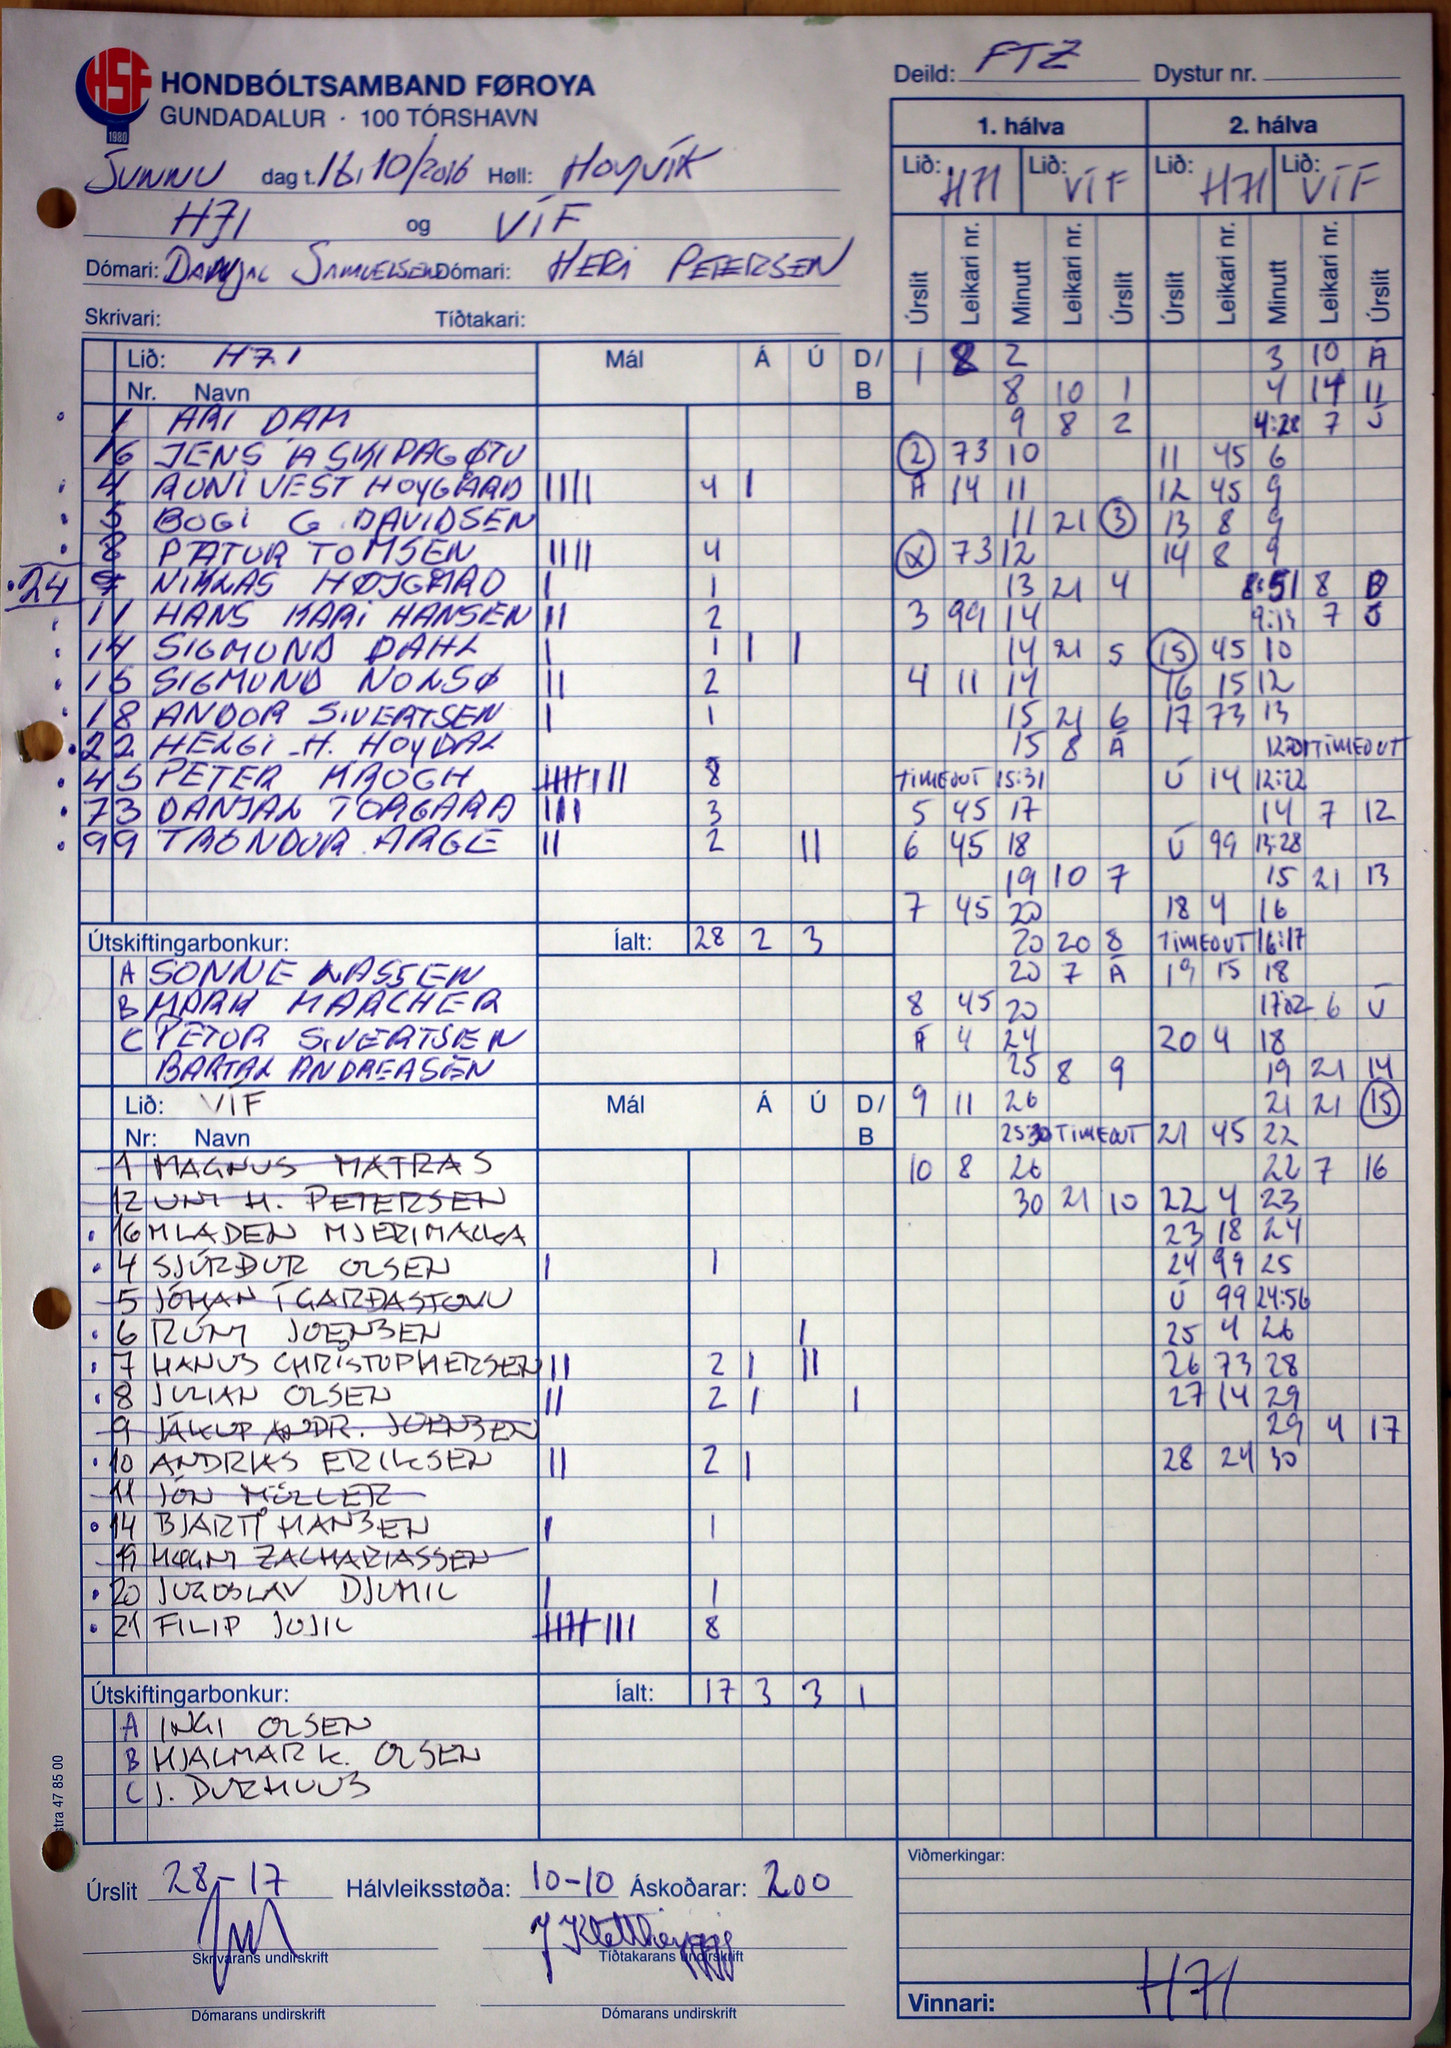 HSF
1980
HONDBÓLTSAMBAND FØROYA
GUNDADALUR · 100 TÓRSHAVN
Deild: FTZ Dystur nr.
SUNNU dag t. 16. 10/2016 Høll: HOYVÍK
H71 og VÍF
Dómari: DANJAL SAMUELSEN Dómari: HERI PETERSEN
Skrivari: Tíðtakari:
Lið: H71 Mál Á Ú D/B
Nr. Navn
1 ARI DAM
16 JENS Á SKIPAGØTU
4 RONI VEST HOYGARD IIII 4 I
5 BOGI G DAVIDSEN
8 PÆTUR TOMSEN IIII 4
24 NIKLAS HØJGARD I 1
11 HANS KARI HANSEN II 2
14 SIGMUND DAHL I 1 I I
15 SIGMUND NOLSØ II 2
18 ANDOR SIVERTSEN I 1
22 HELGI H. HOYDAL
45 PETER KROGH IIIIIIII 8
73 DANJAL TORGARD III 3
99 TRONDUR ARGE II 2 II
Útskiftingarbonkur: Íalt: 28 2 3
A SONNE LASSEN
B MARK MARCHER
C PETUR SIVERTSEN
BARTAL ANDREASEN
Lið: VÍF Mál Á Ú D/B
Nr: Navn
1 MAGNUS MATRAS
12 UNI H. PETERSEN
16 MLADEN
4 SJÚRÐUR OLSEN I 1
5 JÓHAN Í GARÐASTOVU
6 RÚNI JOENSEN I
7 HANUS CHRISTOPHERSEN II 2 I II
8 JULIAN OLSEN II 2 I I
9 JÁKUP ANDR. JOENSEN
10 ANDRIAS ERIKSEN II 2 I
11 JÓN MÜLLER
14 BJARTI HANSEN I 1
19 HØGNI ZACHARIASSEN
20 JUGOSLAV DJUMIC I 1
21 FILIP JOJIC IIIIIIII 8
Útskiftingarbonkur: Íalt: 17 3 3 1
A INGI OLSEN
B HJALMAR K. OLSEN
C J. DURHUUS
Úrslit 28-17 Hálvleiksstøða: 10-10 Áskoðarar: 200
Skrivarans undirskrift Tíðtakarans undirskrift
Dómarans undirskrift Dómarans undirskrift
1. hálva 2. hálva
Lið: H71 Lið: VÍF Lið: H71 Lið: VÍF
Úrslit Leikari nr. Minutt Leikari nr. Úrslit Úrslit Leikari nr. Minutt Leikari nr. Úrslit
1 8 2 3 10 Á
8 10 1 4 14 11
9 8 2 4:28 7 Ú
2 73 10 11 45 6
Á 14 11 12 45 9
11 21 3 13 8 9
73 12 14 8 9
13 21 4 8:51 8 D
3 99 14 9:13 7 Ú
14 21 5 15 45 10
4 11 14 16 15 12
15 21 6 17 73 13
15 8 Á TIMEOUT
TIMEOUT 15:31 Ú 14 12:22
5 45 17 14 7 12
6 45 18 Ú 99 13:28
19 10 7 15 21 13
7 45 20 18 4 16
20 20 8 TIMEOUT 16:17
20 7 Á 19 15 18
8 45 20 17:02 6 Ú
Á 4 24 20 4 18
25 8 9 19 21 14
9 11 26 21 21 15
25:30 TIMEOUT 21 45 22
10 8 26 22 7 16
30 21 10 22 4 23
23 18 24
24 99 25
Ú 99 24:56
25 4 26
26 73 28
27 14 29
29 4 17
28 24 30
Viðmerkingar:
Vinnari: H71
stra 47 85 00